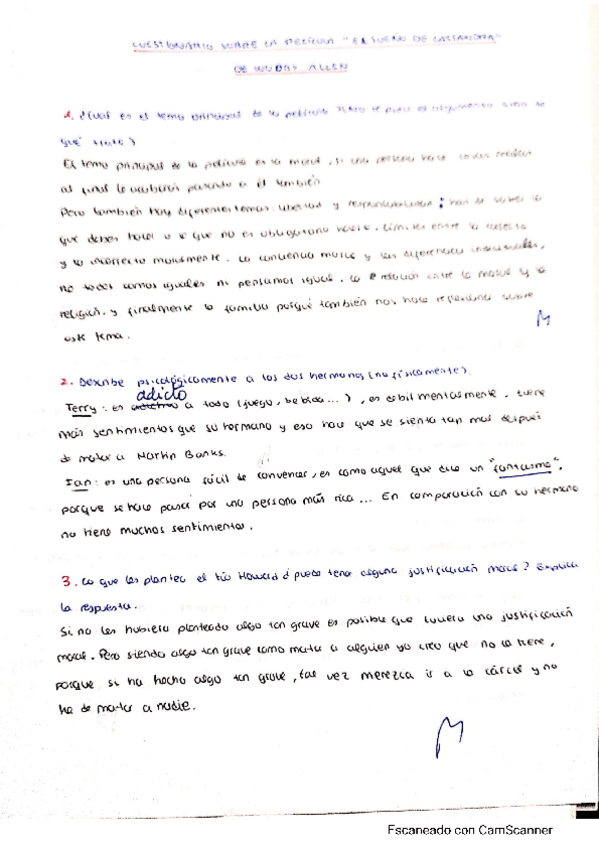 CUESTIONARIO SOBRE LA PELÍCULA "EL SUEÑO DE CASSANDRA"
DE WOODY ALLEN
1. ¿Cuál es el tema principal de la película? (No te pido el argumento sino de
qué trata)
El tema principal de la película es la moral, si una persona hace cosas malas
al final le acabará pasando a él también
Pero también hay diferentes temas: libertad y responsabilidad; has de saber lo
que debes hacer o lo que no es obligatorio hacer, límites entre lo correcto
y lo incorrecto moralmente. La conciencia moral y las diferencias individuales,
no todos somos iguales ni pensamos igual. La relación entre la moral y la
religión. y finalmente la familia porqué también nos hace reflexionar sobre
este tema.
M
2. Describe psicológicamente a los dos hermanos (no físicamente).
adicto
Terry: es a todo (juego, bebida...), es débil mentalmente, tiene
más sentimientos que su hermano y eso hace que se sienta tan mal después
de matar a Martin Banks.
Ian: es una persona fácil de convencer, es como aquel que dice un "fantasma",
porque se hace pasar por una persona más rica... En comparación con su hermano
no tiene muchos sentimientos.
3. Lo que les plantea el tío Howard ¿puede tener alguna justificación moral? Explica
la respuesta.
Si no les hubiera planteado algo tan grave es posible que tuviera una justificación
moral. Pero siendo algo tan grave como matar a alguien yo creo que no la tiene,
porque si ha hecho algo tan grave, tal vez merezca ir a la cárcel y no
ha de matar a nadie.
M
Escaneado con CamScanner